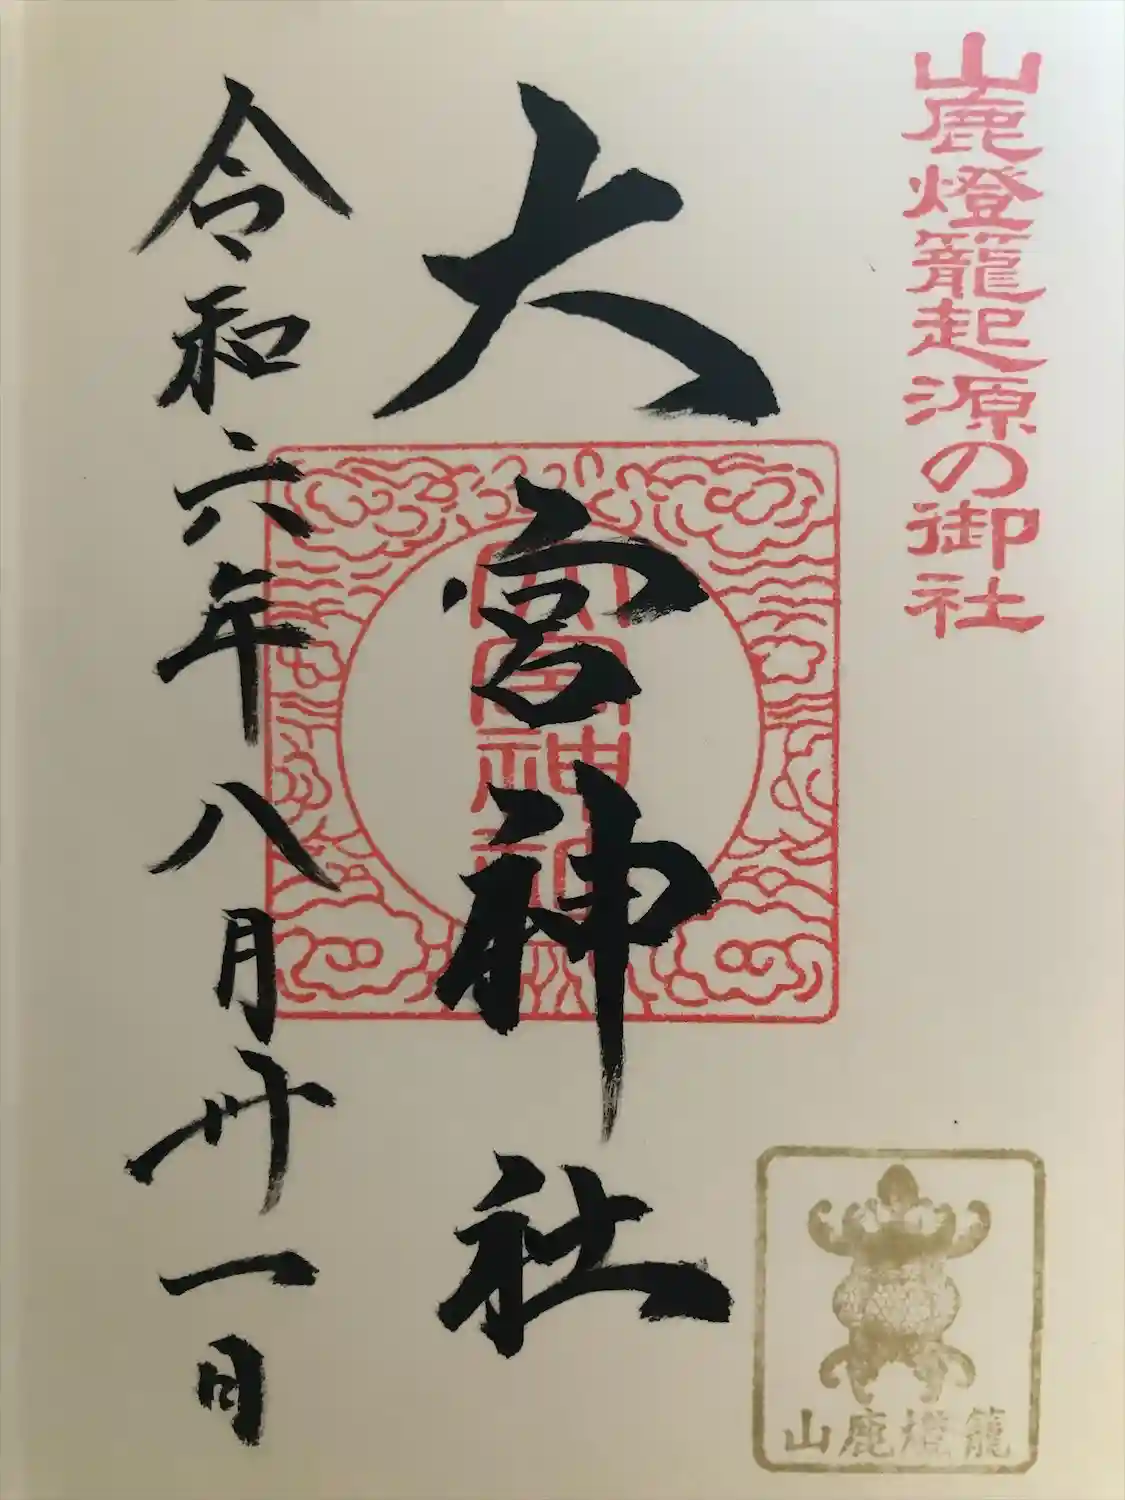 山鹿燈籠起源の御社
大宮神社
大宮神社
令和六年八月卅一日
山鹿燈籠